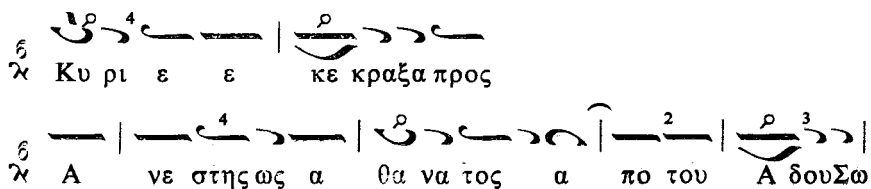 Κυ ρι ε ε κε κραξα προς
Α νε στης ως α θα να τος α πο του Α δουΣω